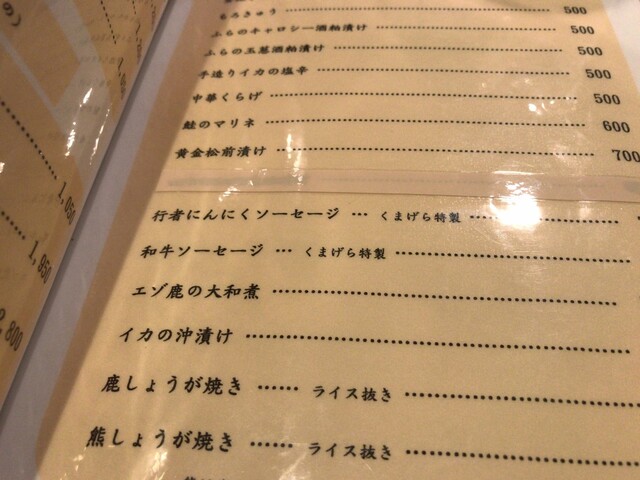 もろきゅう 500
ふらのキャロシー酒粕漬け 500
ふらの玉葱酒粕漬け 500
手造りイカの塩辛 500
中華くらげ 500
鮭のマリネ 600
黄金松前漬け 700
行者にんにくソーセージ … くまげら特製
和牛ソーセージ … くまげら特製
エゾ鹿の大和煮
イカの沖漬け
鹿しょうが焼き …… ライス抜き
熊しょうが焼き …… ライス抜き
1,050
1,950